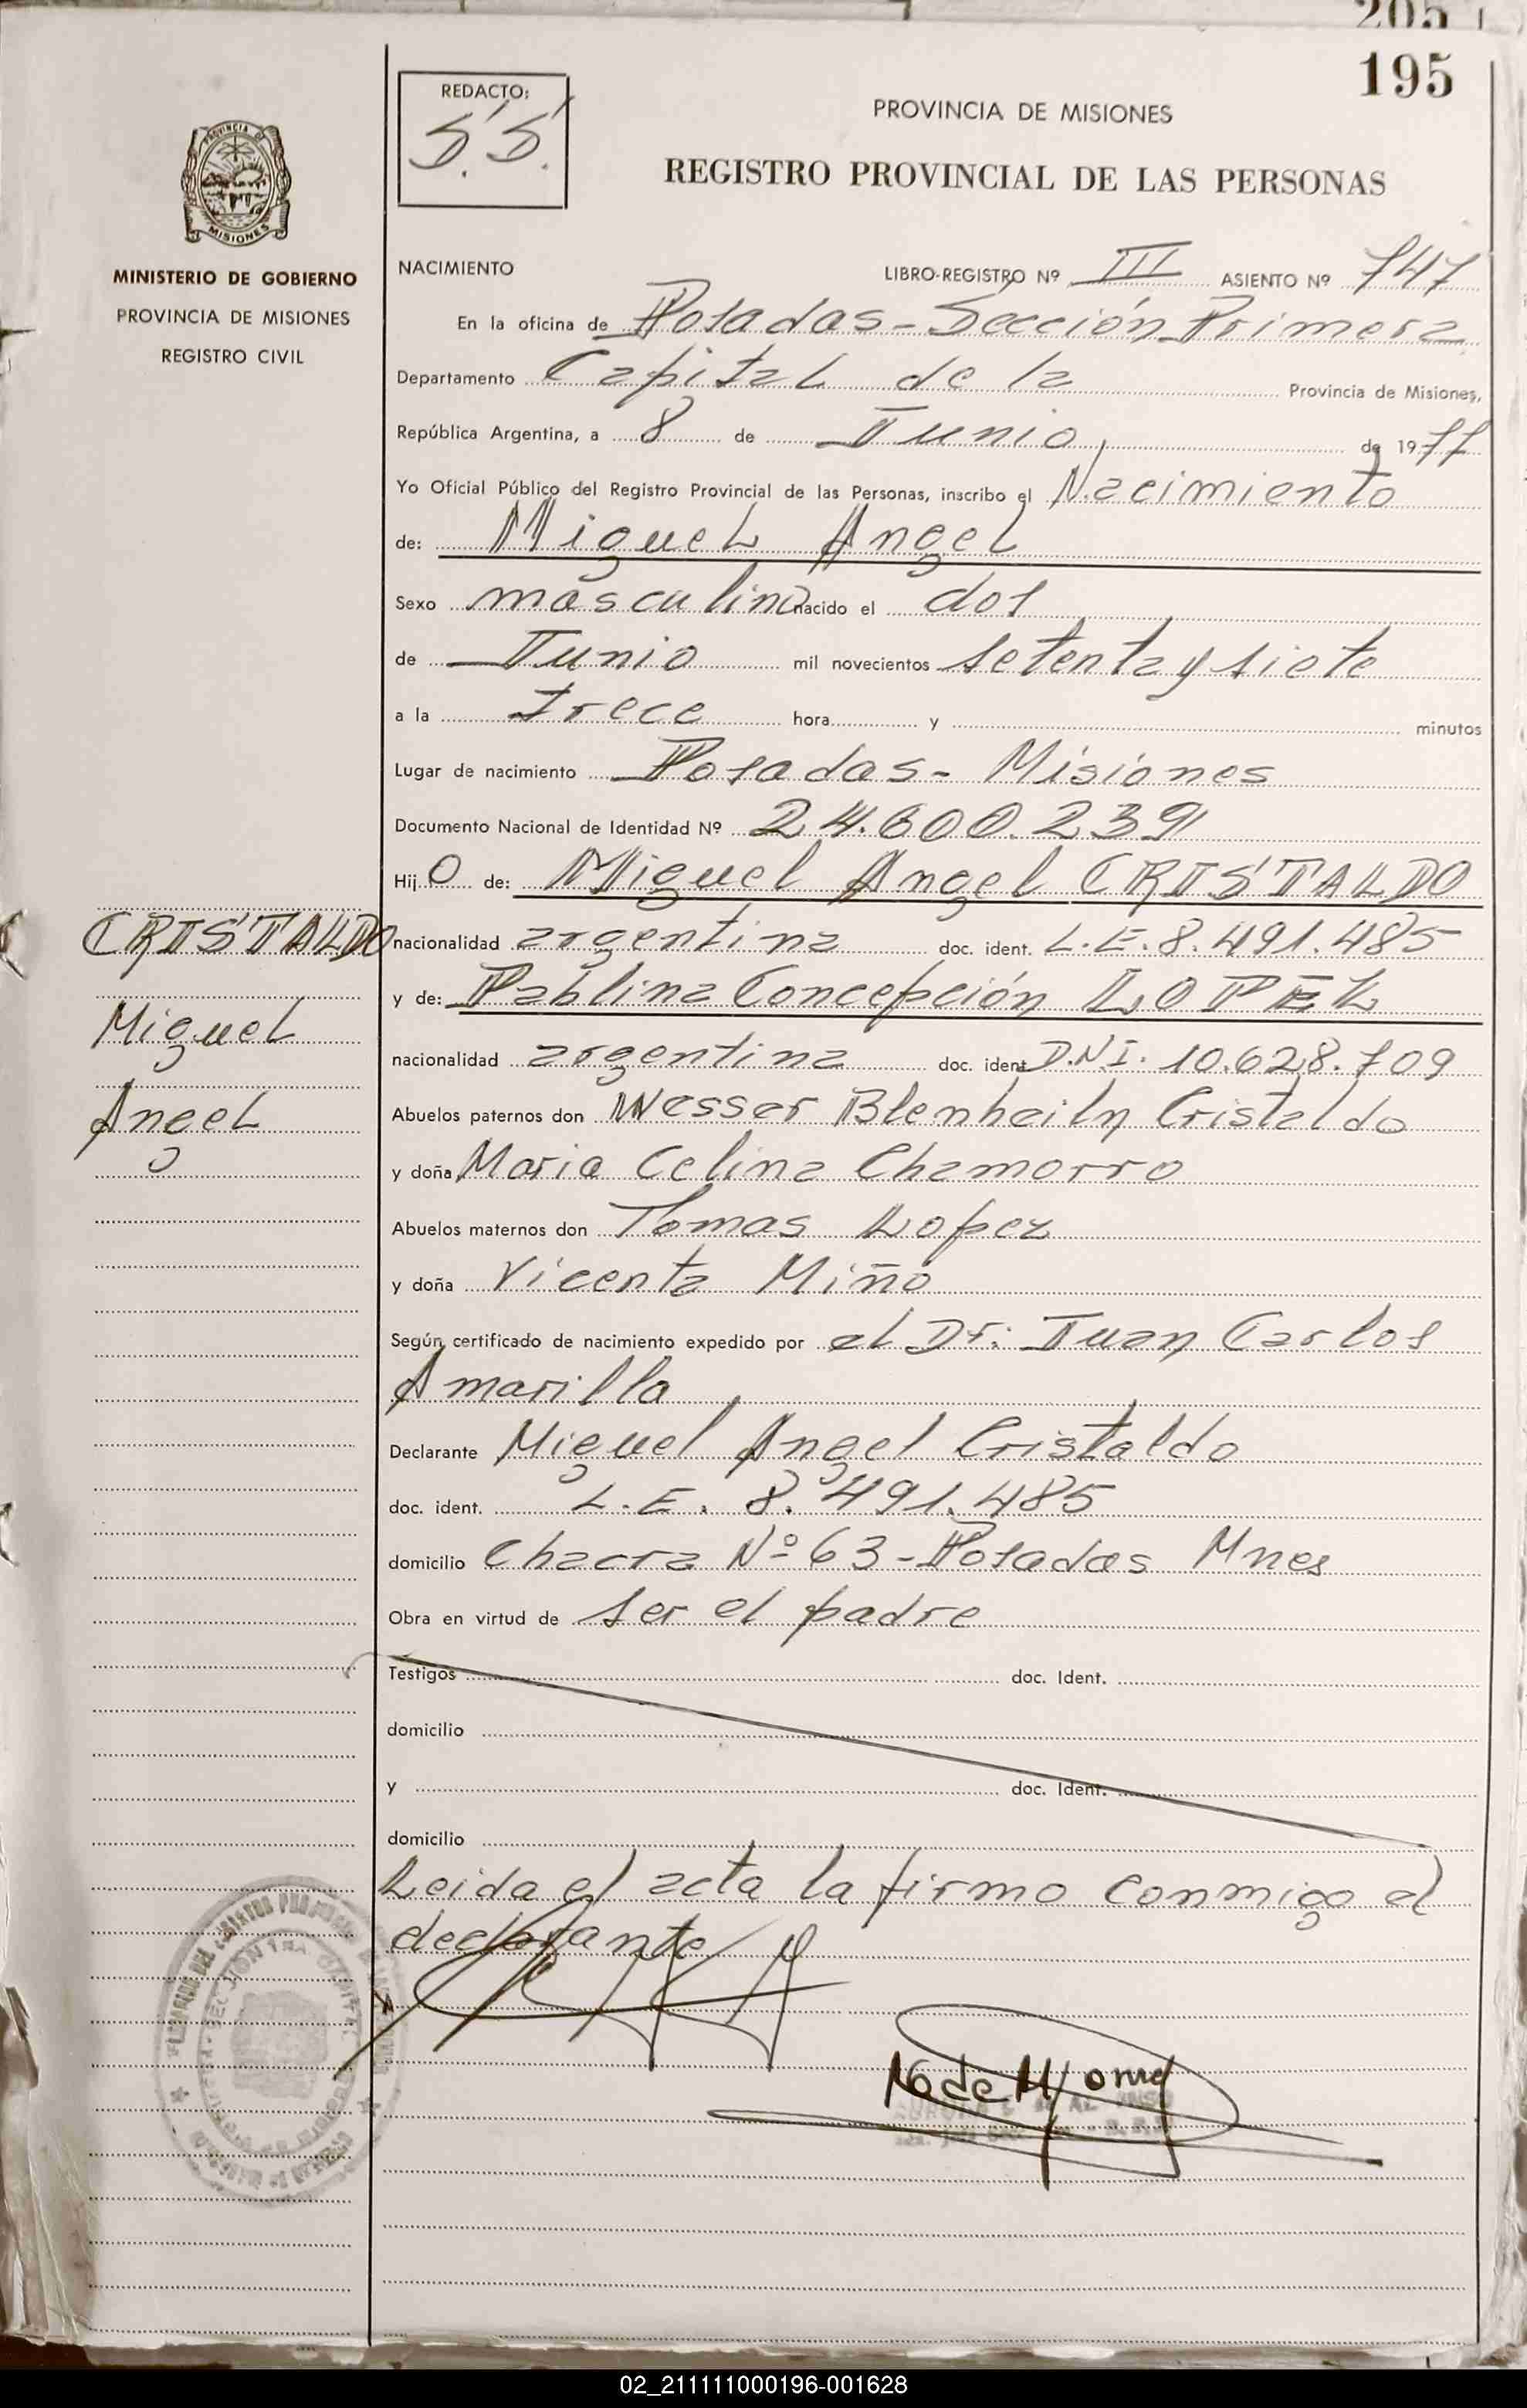 205
195
REDACTO:
S.S.
PROVINCIA DE MISIONES
REGISTRO PROVINCIAL DE LAS PERSONAS
PROVINCIA DE
MISIONES
MINISTERIO DE GOBIERNO
PROVINCIA DE MISIONES
REGISTRO CIVIL
NACIMIENTO LIBRO-REGISTRO Nº III ASIENTO Nº 747
En la oficina de Posadas - Sección Primera
Departamento Capital de la Provincia de Misiones,
República Argentina, a 8 de Junio, de 1977
Yo Oficial Público del Registro Provincial de las Personas, inscribo el Nacimiento
de: Miguel Angel
Sexo masculino nacido el dos
de Junio mil novecientos setenta y siete
a la trece hora y minutos
Lugar de nacimiento Posadas - Misiones
Documento Nacional de Identidad Nº 24.600.239
Hij o de: Miguel Angel CRISTALDO
nacionalidad argentina doc. ident. L.E. 8.491.485
y de: Pablina Concepción LOPEZ
nacionalidad argentina doc. ident D.N.I. 10.628.709
Abuelos paternos don Wesser Blenheily Cristaldo
y doña Maria Celina Chamorro
Abuelos maternos don Tomas Lopez
y doña Vicenta Miño
Según certificado de nacimiento expedido por el Dr. Juan Carlos
Amarilla
Declarante Miguel Angel Cristaldo
doc. ident. L.E. 8.491.485
domicilio Chacra Nº 63 - Posadas Mnes
Obra en virtud de ser el padre
Testigos doc. Ident.
domicilio
y doc. Ident.
domicilio
Leida el acta la firmo conmigo el
declarante
CRISTALDO
Miguel
Angel
02_211111000196-001628